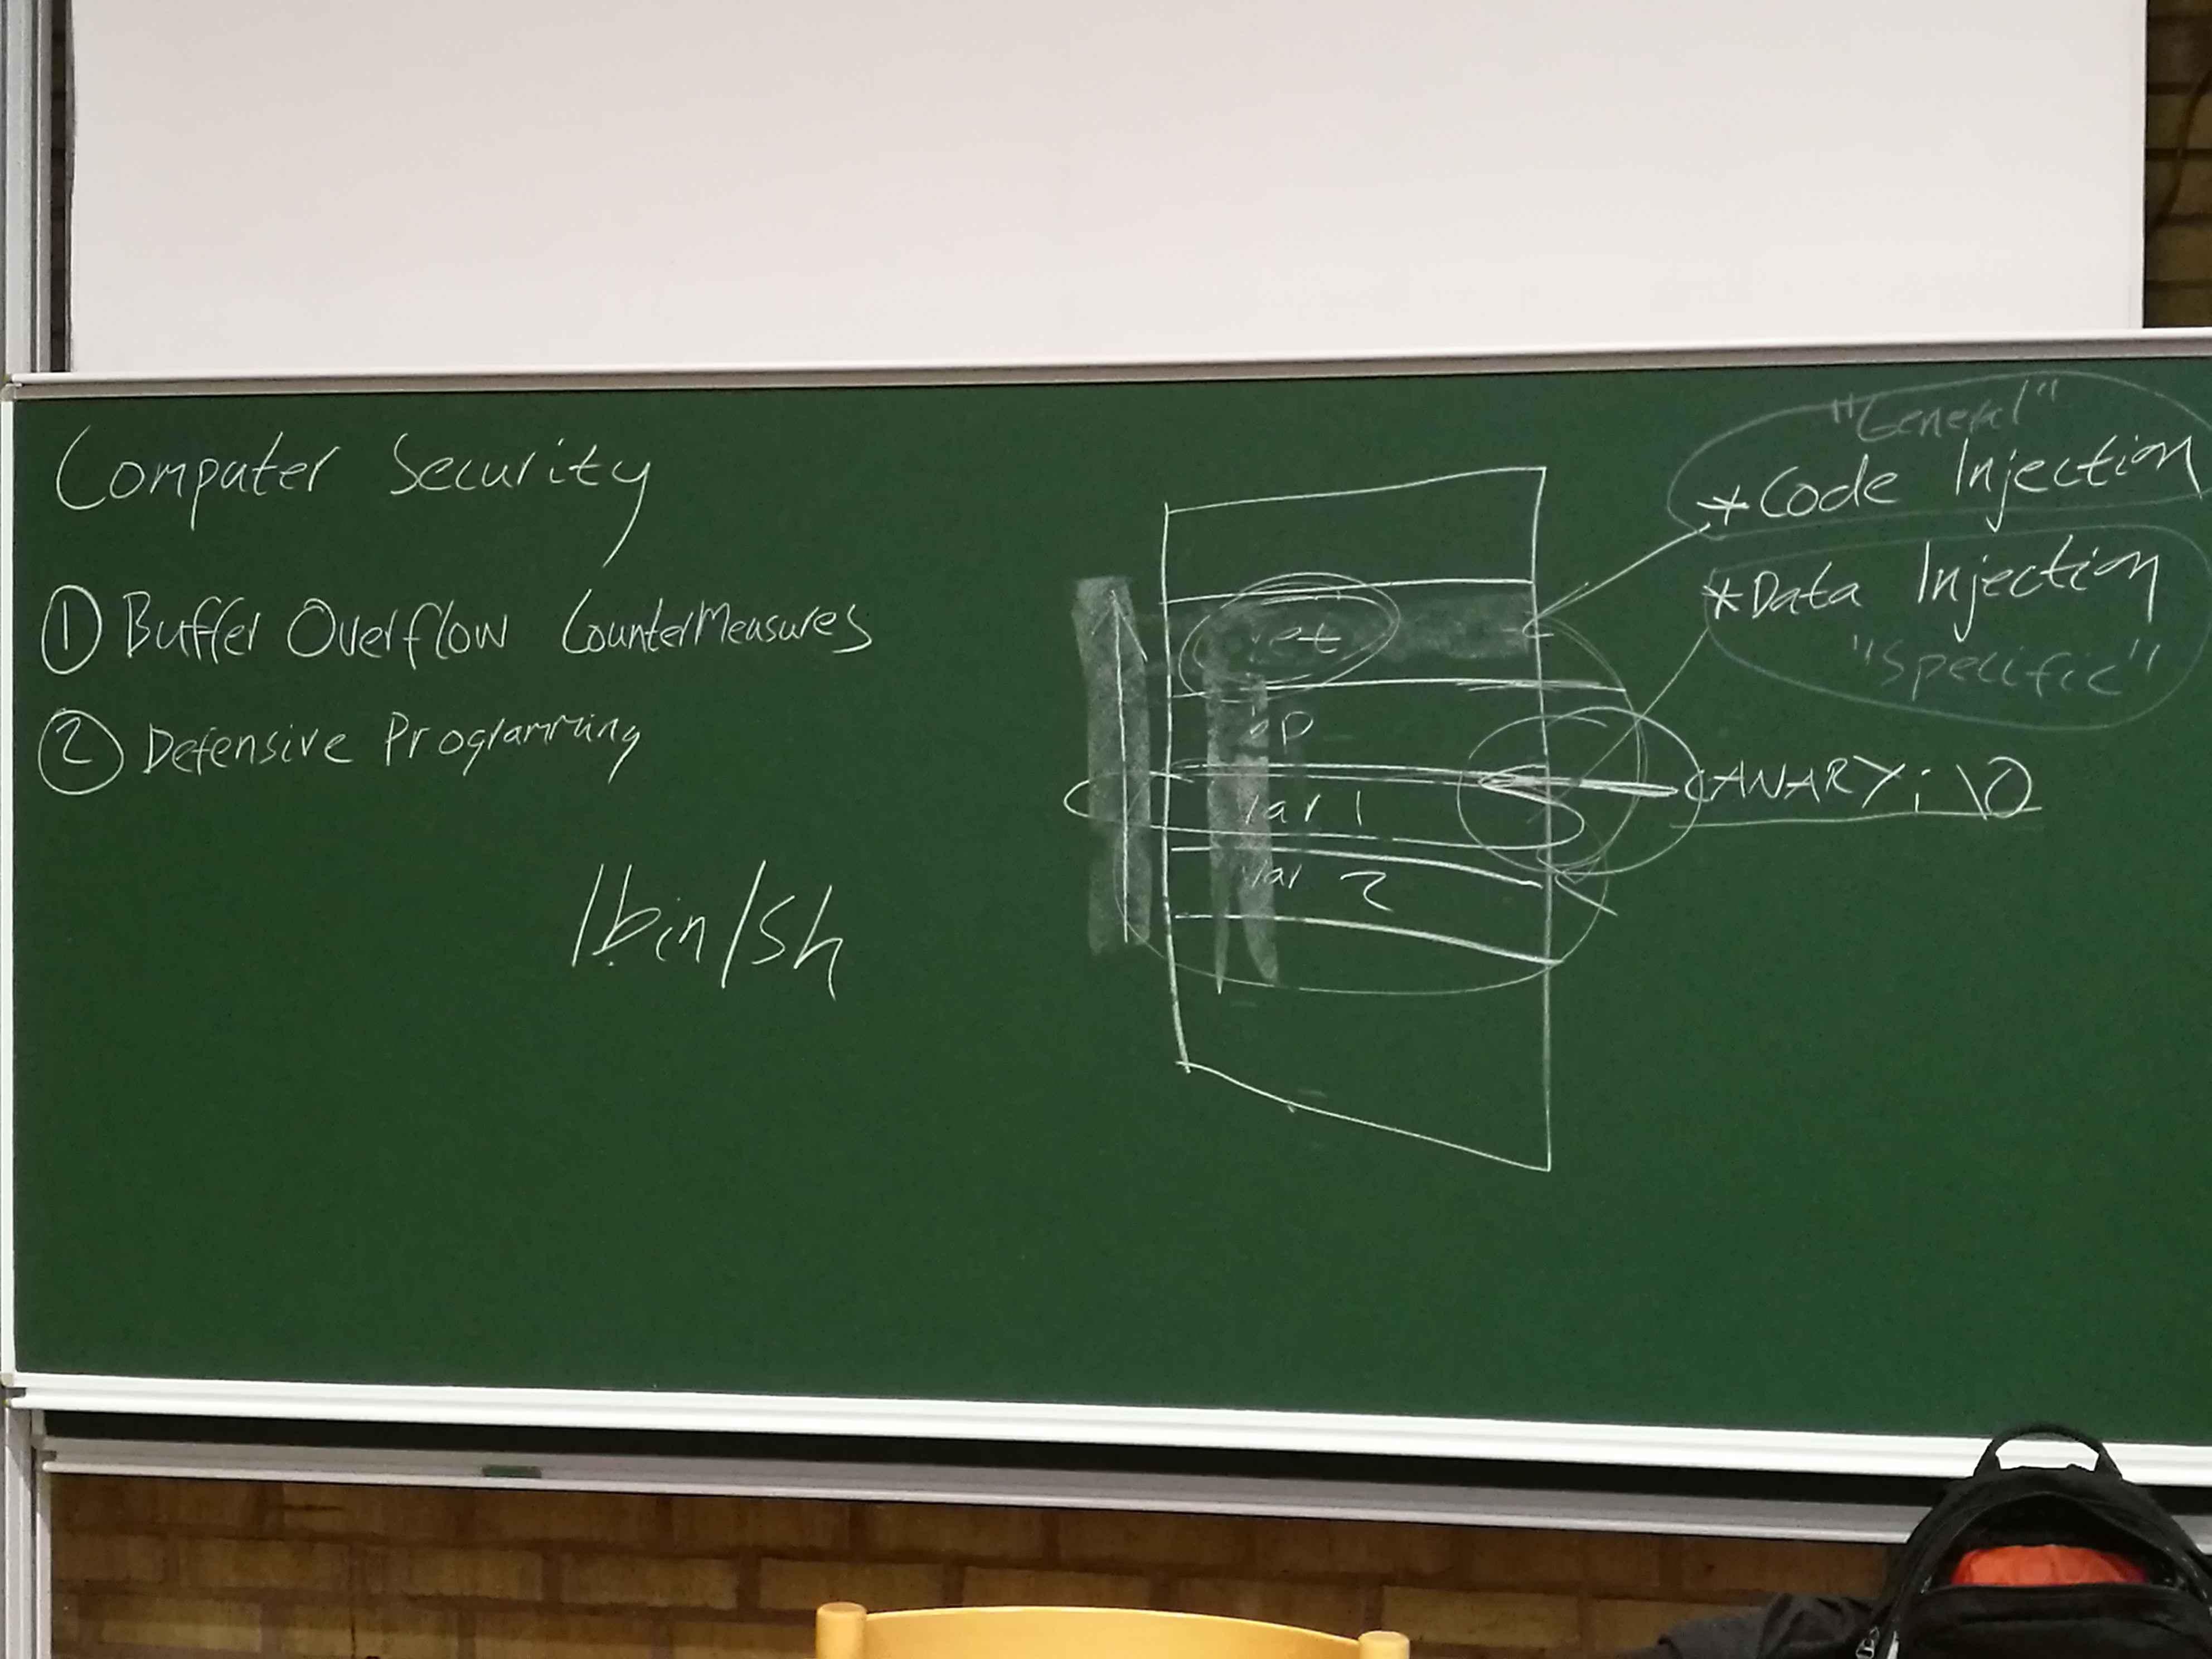 Computer Security
① Buffer Overflow CounterMeasures
② Defensive Programming
/bin/sh
ret
bp
var 1
var 2
"General"
*Code Injection
*Data Injection
"Specific"
CANARY: \0